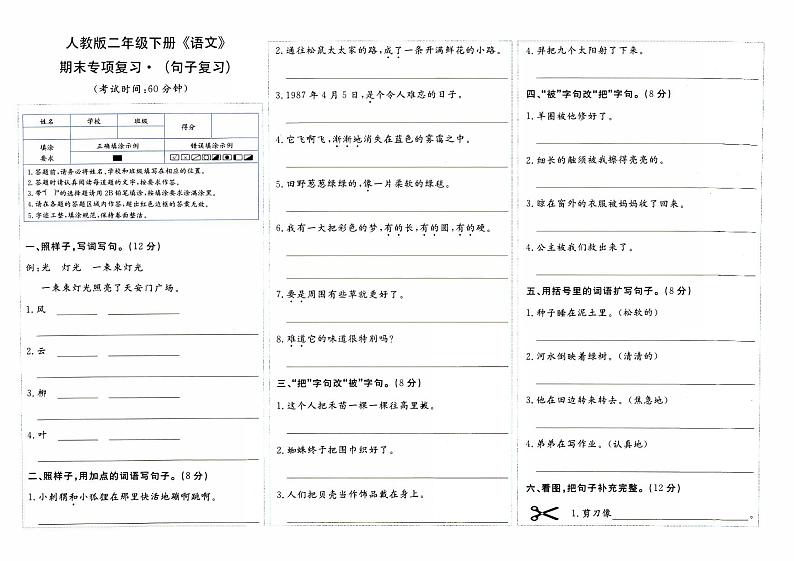 人教版二年级下册《语文》
期末专项复习·（句子复习）
（考试时间:60分钟）
姓名 学校 班级 得分
填涂要求 正确填涂示例 错误填涂示例
1.答题前,请务必将姓名、学校和班级填写在相应的位置。
2.答题时请认真阅读每道题的文字,按要求作答。
3.带“【 】”的选择题请用2B铅笔填涂,按填涂要求涂满涂黑。
4.请在各题的答题区域内作答,超出红色边框的答案无效。
5.字迹工整,填涂规范,保持卷面整洁。
一、照样子,写词写句。(12分)
例:光 灯光 一束束灯光
一束束灯光照亮了天安门广场。
1.风
2.云
3.柳
4.叶
二、照样子,用加点的词语写句子。(8分)
1.小刺猬和小狐狸在那里快活地蹦啊跳啊。
2.通往松鼠太太家的路,成了一条开满鲜花的小路。
3.1987年4月5日,是个令人难忘的日子。
4.它飞啊飞,渐渐地消失在蓝色的雾霭之中。
5.田野葱葱绿绿的,像一片柔软的绿毯。
6.我有一大把彩色的梦,有的长,有的圆,有的硬。
7.要是周围有些草就更好了。
8.难道它的味道很特别吗?
三、“把”字句改“被”字句。(8分)
1.这个人把禾苗一棵一棵往高里拔。
2.蜘蛛终于把围巾织好了。
3.人们把贝壳当作饰品戴在身上。
4.羿把九个太阳射了下来。
四、“被”字句改“把”字句。(8分)
1.羊圈被他修好了。
2.细长的触须被我擦得亮亮的。
3.晾在窗外的衣服被妈妈收了回来。
4.公主被我们救出来了。
五、用括号里的词语扩写句子。(8分)
1.种子睡在泥土里。(松软的)
2.河水倒映着绿树。(清清的)
3.他在田边转来转去。(焦急地)
4.弟弟在写作业。(认真地)
六、看图,把句子补充完整。(12分)
1.剪刀像 。